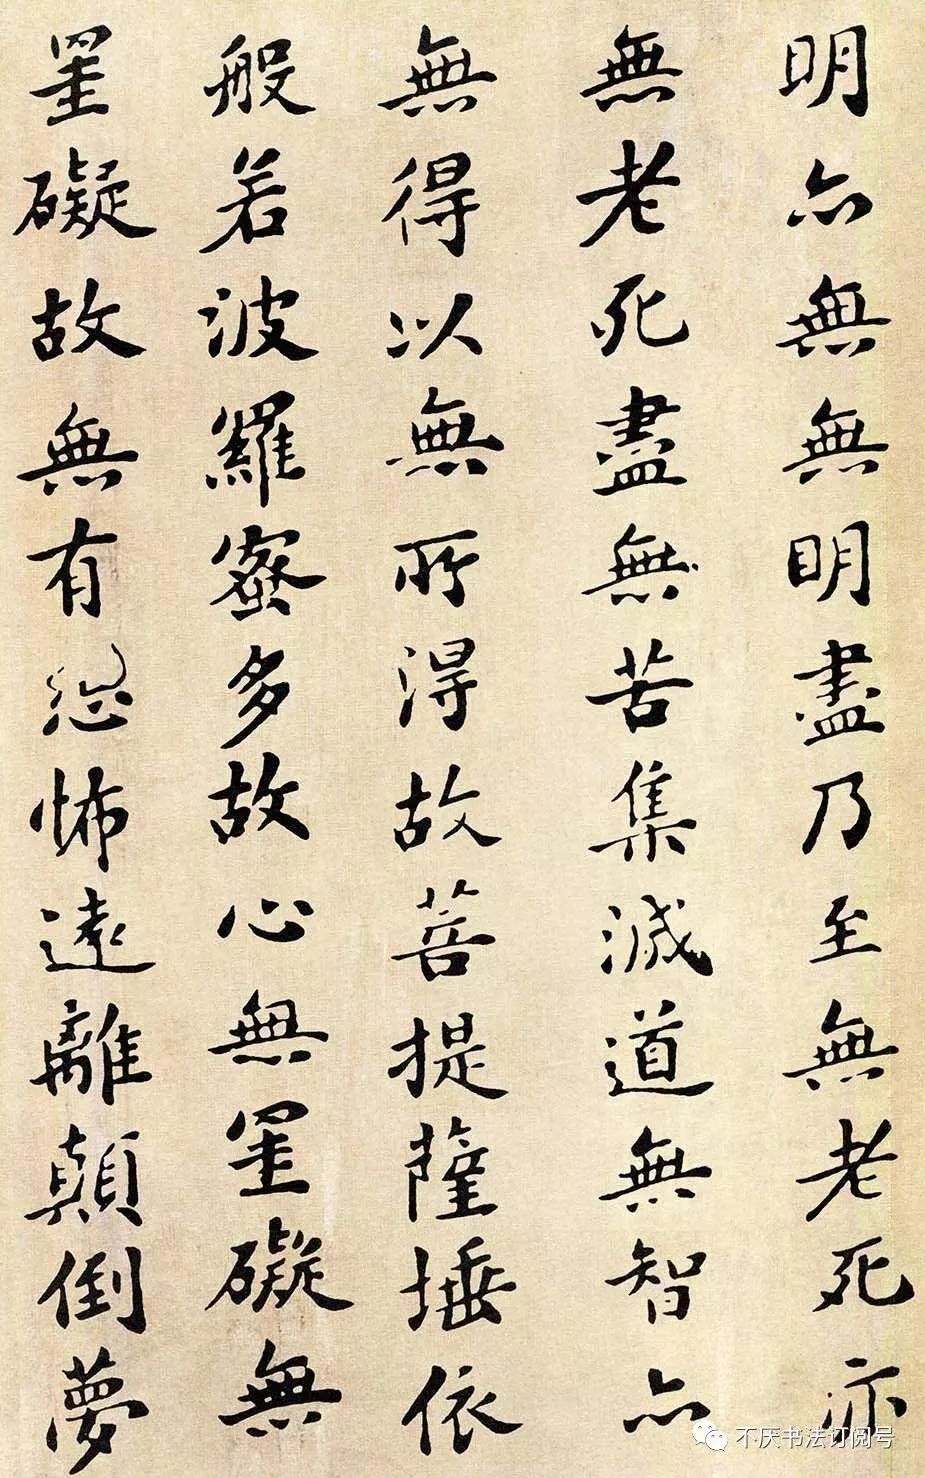 明亦無無明盡乃至無老死亦
無老死盡無苦集滅道無智亦
無得以無所得故菩提薩埵依
般若波羅蜜多故心無罣礙無
罣礙故無有恐怖遠離顛倒夢
不厌书法订阅号